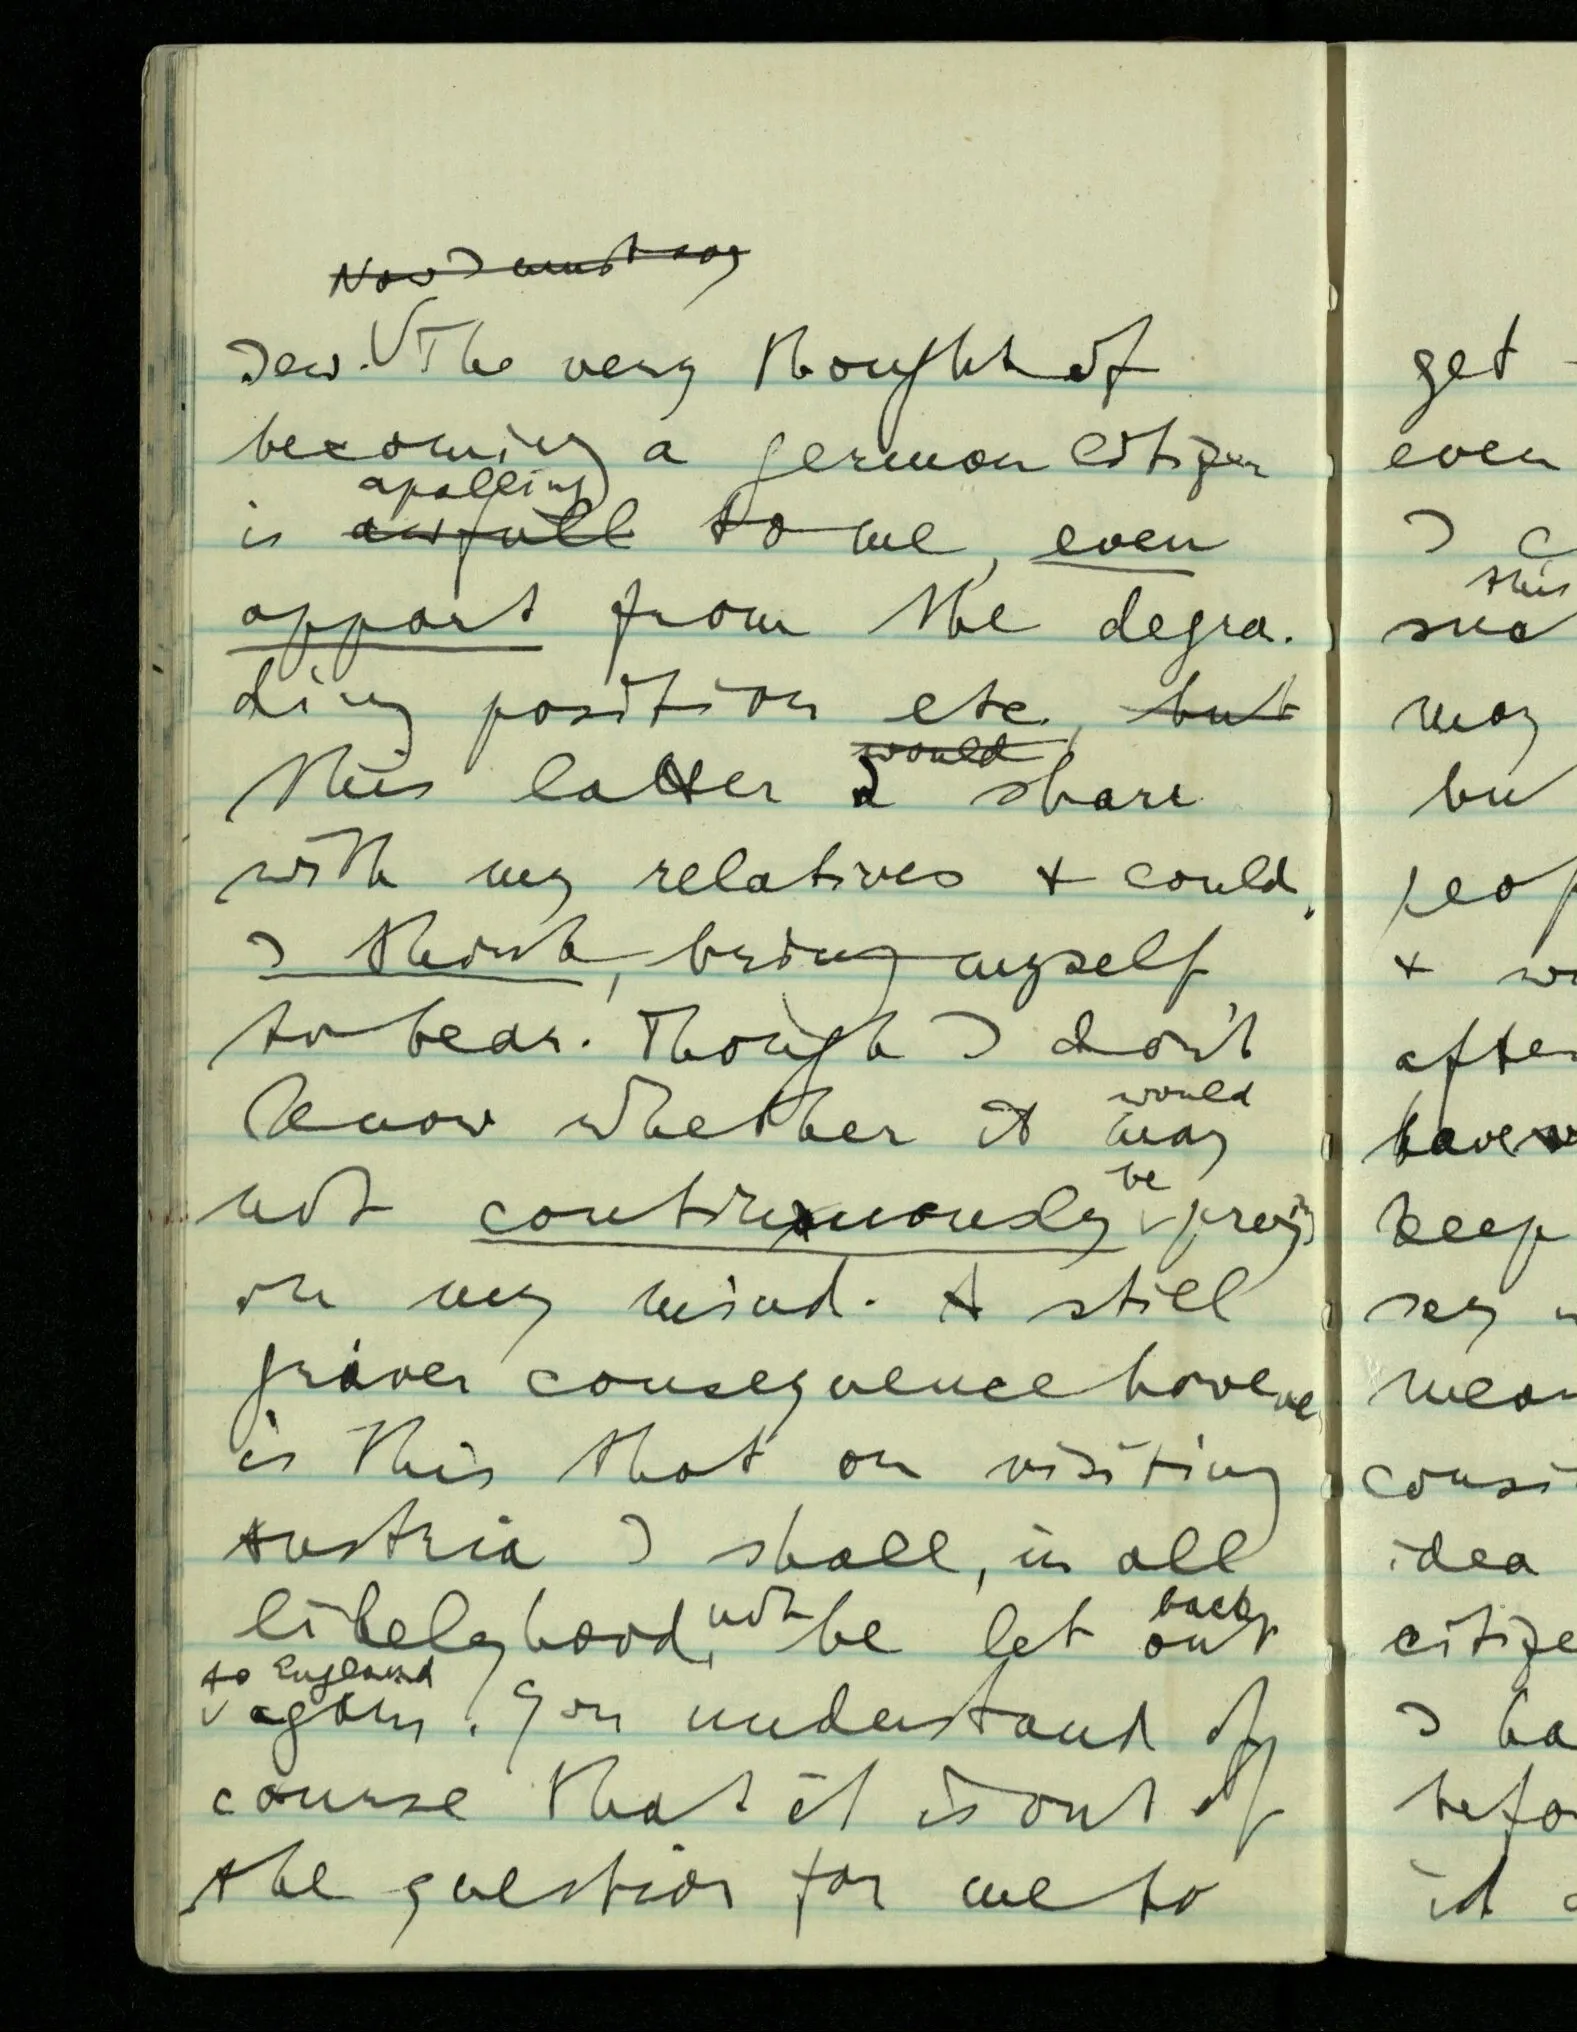 Now I must say
Jew. The very thought of
becoming a german citizen
apalling
is awfull to me, even
appart from the degra-
ding position etc., but
would
this latter I share
with my relatives & could,
I think, bring myself
to bear. Though I don't
would
know whether it may
be
not continuously preying
on my mind. A still
graver consequence however
is this that on visiting
Austria I shall, in all
back
likelyhood, not be let out
to England
again. You understand of
course that it is out of
the question for me to
get
even
I
this
suc
may
bu
peop
&
after
have
keep
say
mean
consi
idea
citize
I ha
befo
it